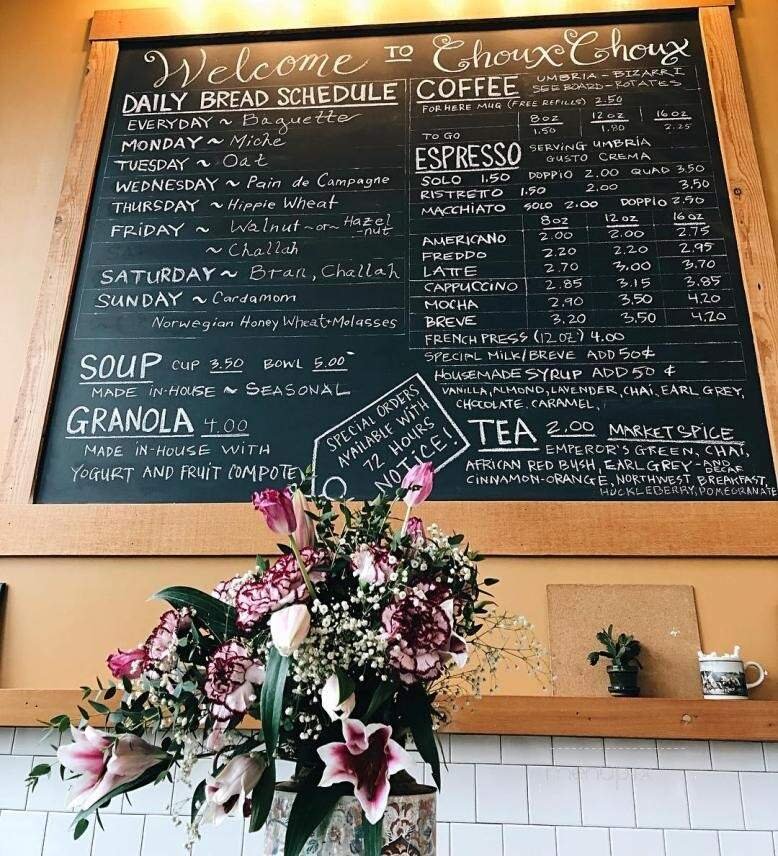 Welcome TO Choux Choux
DAILY BREAD SCHEDULE
EVERYDAY ~ Baguette
MONDAY ~ Miche
TUESDAY ~ Oat
WEDNESDAY ~ Pain de Campagne
THURSDAY ~ Hippie Wheat
FRIDAY ~ Walnut ~or~ Hazel
-nut
~ Challah
SATURDAY ~ Bran, Challah
SUNDAY ~ Cardamom
Norwegian Honey Wheat+Molasses
SOUP CUP 3.50 BOWL 5.00
MADE IN-HOUSE ~ SEASONAL
GRANOLA 4.00
MADE IN-HOUSE WITH
YOGURT AND FRUIT COMPOTE
SPECIAL ORDERS
AVAILABLE WITH
72 HOURS
NOTICE!
COFFEE UMBRIA - BIZARRI
SEE BOARD - ROTATES
FOR HERE MUG (FREE REFILLS) 2.50
8oz 12oz 16oz
TO GO 1.50 1.80 2.25
ESPRESSO SERVING UMBRIA
GUSTO CREMA
SOLO 1.50 DOPPIO 2.00 QUAD 3.50
RISTRETTO 1.50 2.00 3.50
MACCHIATO SOLO 2.00 DOPPIO 2.50
8oz 12oz 16oz
AMERICANO 2.00 2.00 2.75
FREDDO 2.20 2.20 2.95
LATTE 2.70 3.00 3.70
CAPPUCCINO 2.85 3.15 3.85
MOCHA 2.90 3.50 4.20
BREVE 3.20 3.50 4.20
FRENCH PRESS (12 OZ) 4.00
SPECIAL MILK/BREVE ADD 50¢
HOUSEMADE SYRUP ADD 50 ¢
VANILLA, ALMOND, LAVENDER, CHAI, EARL GREY,
CHOCOLATE, CARAMEL,
TEA 2.00 MARKET SPICE
EMPEROR'S GREEN, CHAI,
AFRICAN RED BUSH, EARL GREY -AND DECAF
CINNAMON-ORANGE, NORTHWEST BREAKFAST,
HUCKLEBERRY, POMEGRANATE